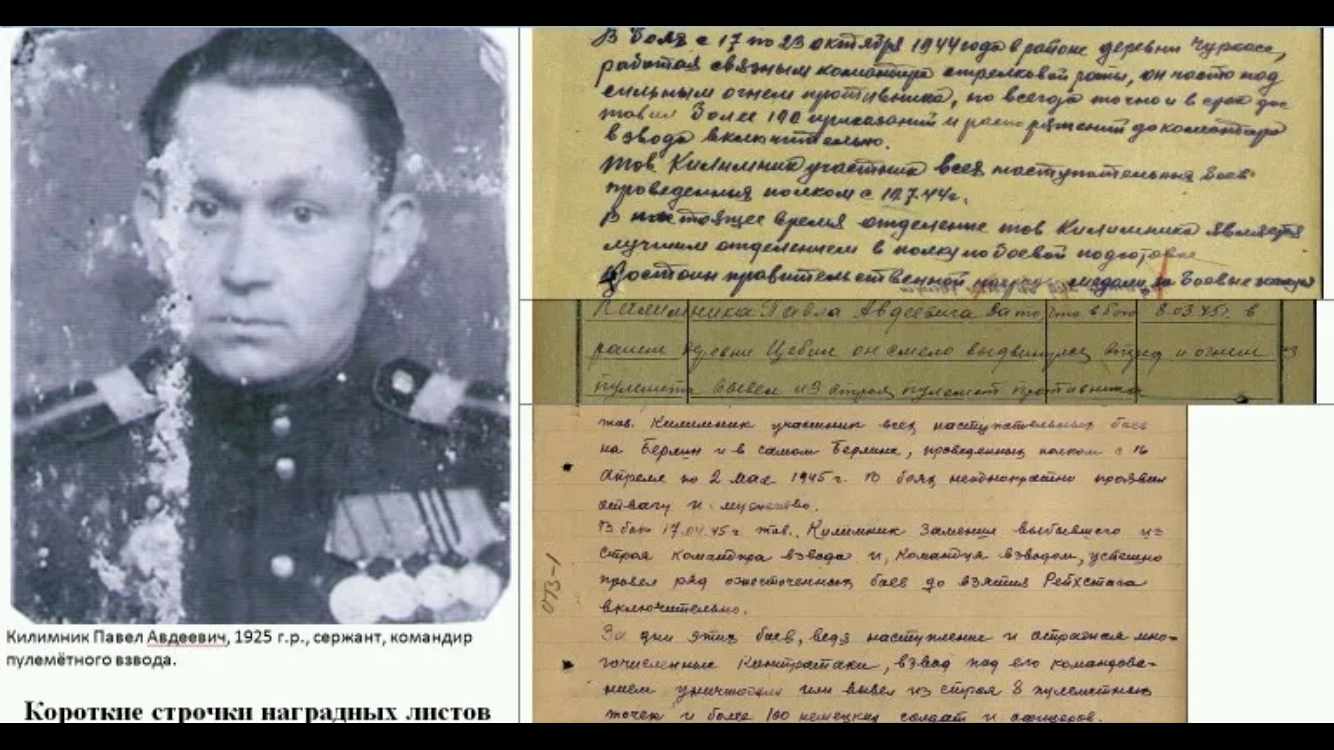 Килимник Павел Авдеевич, 1925 г.р., сержант, командир
пулемётного взвода.
Короткие строчки наградных листов
В боях с 17 по 23 октября 1944 года в районе деревни
работая связным командира стрелковой роты, он часто под
сильным огнем противника, но всегда точно и в срок дос
тавил более 100 приказаний и распоряжений до командира
взвода включительно.
Тов. Килимник участник всех наступательных боев
проведенных полком с
В настоящее время отделение тов Килимника является
лучшим отделением в полку по боевой подготовке
Достоин правительственной медали за боевые
Килимника Павла Авдеевича за то, что в бою 8.03.45г. в
районе деревни он смело выдвинулся вперед и огнем из
пулемета вывел из строя пулемет противника
тов. Килимник участник всех наступательных боев
на Берлин и в самом Берлине, проведенных полком с 16
апреля по 2 мая 1945 г. В боях неоднократно проявил
отвагу и мужество.
В бою 17.04.45г тов. Килимник заменил выбывшего из
строя командира взвода и, командуя взводом, успешно
провел ряд ожесточенных боев до взятия Рейхстага
включительно.
За дни этих боев, ведя наступление и отражая мно-
гочисленные контратаки, взвод под его командова-
нием уничтожил или вывел из строя 8 пулеметных
точек и более 100 немецких солдат и офицеров.